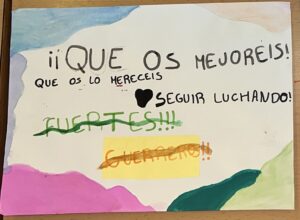 ¡¡QUE OS MEJOREIS!
QUE OS LO MERECEIS
SEGUIR LUCHANDO!
FUERTES!!!
GUERRERO!!